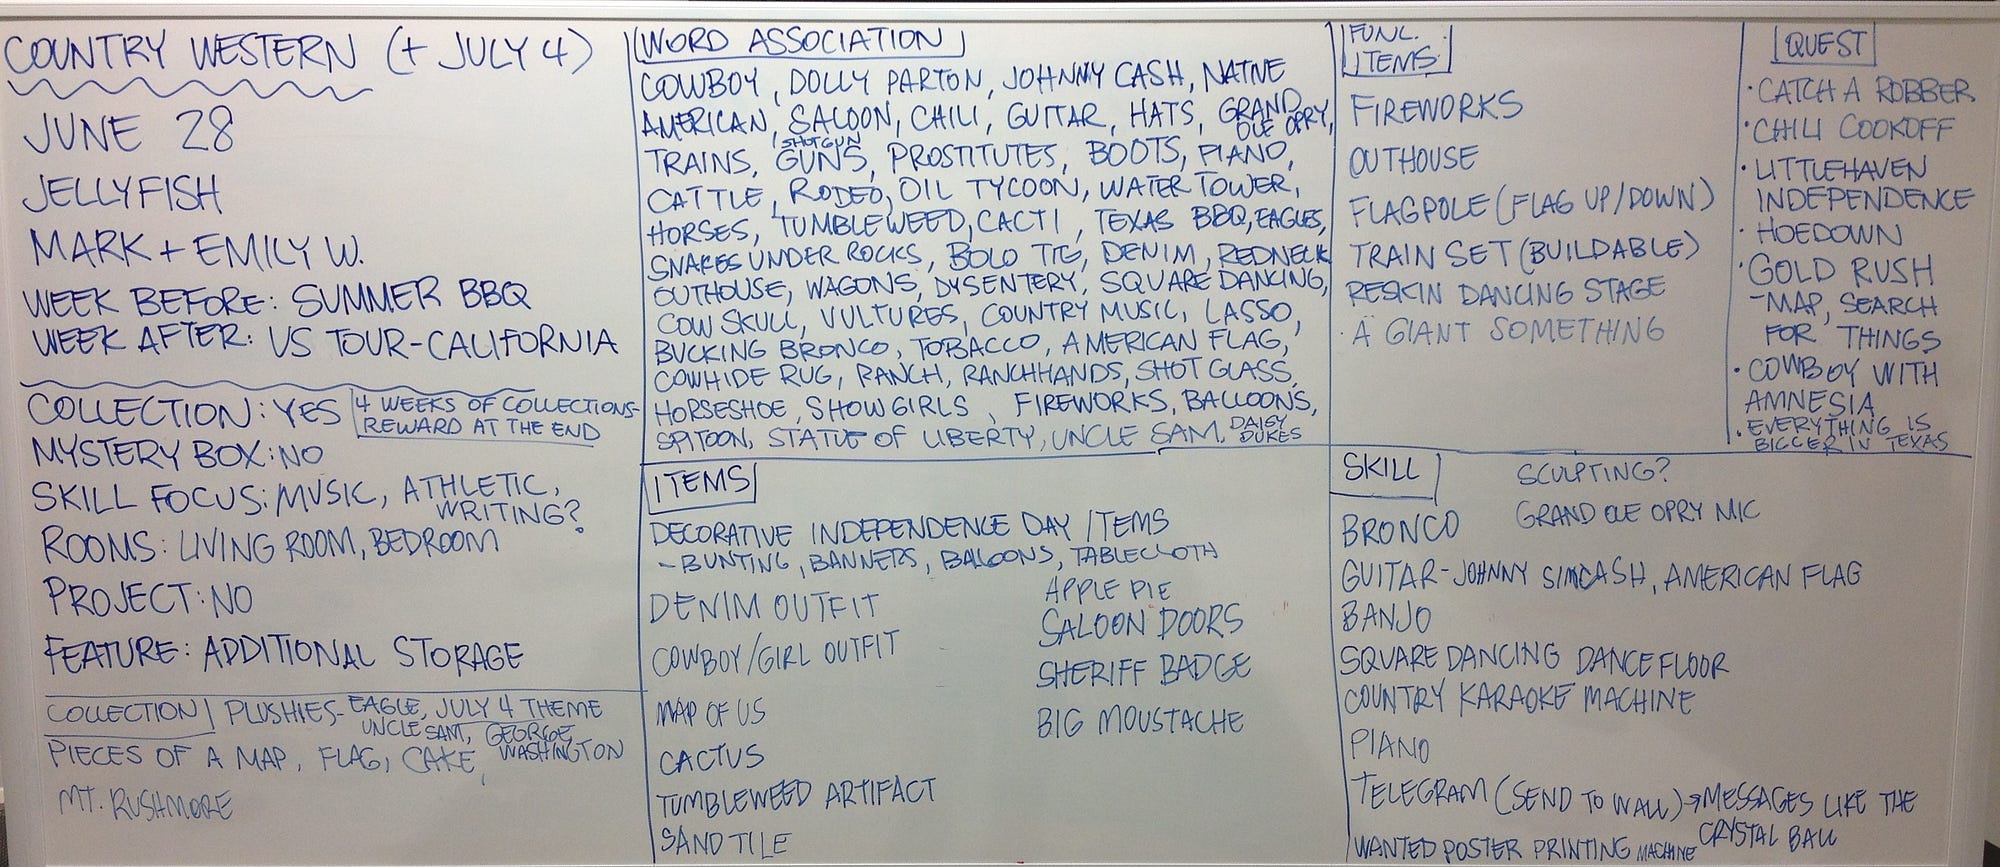 COUNTRY WESTERN (+ JULY 4)
JUNE 28
JELLYFISH
MARK + EMILY W.
WEEK BEFORE: SUMMER BBQ
WEEK AFTER: US TOUR-CALIFORNIA
COLLECTION: YES
4 WEEKS OF COLLECTIONS-
REWARD AT THE END
MYSTERY BOX: NO
SKILL FOCUS: MUSIC, ATHLETIC,
WRITING?
ROOMS: LIVING ROOM, BEDROOM
PROJECT: NO
FEATURE: ADDITIONAL STORAGE
COLLECTION
PLUSHIES- EAGLE, JULY 4 THEME
UNCLE SAM, GEORGE
WASHINGTON
PIECES OF A MAP, FLAG, CAKE,
MT. RUSHMORE
WORD ASSOCIATION
COWBOY, DOLLY PARTON, JOHNNY CASH, NATIVE
AMERICAN, SALOON, CHILI, GUITAR, HATS, GRAND
OLE OPRY,
SHOTGUN
TRAINS, GUNS, PROSTITUTES, BOOTS, PIANO,
CATTLE, RODEO, OIL TYCOON, WATER TOWER,
HORSES, TUMBLEWEED, CACTI, TEXAS BBQ, EAGLES,
SNAKES UNDER ROCKS, BOLO TIE, DENIM, REDNECK
OUTHOUSE, WAGONS, DYSENTERY, SQUARE DANCING,
COW SKULL, VULTURES, COUNTRY MUSIC, LASSO,
BUCKING BRONCO, TOBACCO, AMERICAN FLAG,
COWHIDE RUG, RANCH, RANCHHANDS, SHOT GLASS,
HORSESHOE, SHOWGIRLS, FIREWORKS, BALLOONS,
SPITOON, STATUE OF LIBERTY, UNCLE SAM, DAISY
DUKES
ITEMS
DECORATIVE INDEPENDENCE DAY ITEMS
- BUNTING, BANNERS, BALLOONS, TABLECLOTH
DENIM OUTFIT
COWBOY/GIRL OUTFIT
MAP OF US
CACTUS
TUMBLEWEED ARTIFACT
SAND TILE
APPLE PIE
SALOON DOORS
SHERIFF BADGE
BIG MOUSTACHE
FUNC.
ITEMS
FIREWORKS
OUTHOUSE
FLAGPOLE (FLAG UP/DOWN)
TRAIN SET (BUILDABLE)
RESKIN DANCING STAGE
· A GIANT SOMETHING
QUEST
· CATCH A ROBBER
· CHILI COOKOFF
· LITTLEHAVEN
INDEPENDENCE
· HOEDOWN
· GOLD RUSH
- MAP, SEARCH
FOR THINGS
· COWBOY WITH
AMNESIA
· EVERYTHING IS
BIGGER IN TEXAS
SKILL
SCULPTING?
GRAND OLE OPRY MIC
BRONCO
GUITAR-JOHNNY SIMCASH, AMERICAN FLAG
BANJO
SQUARE DANCING DANCEFLOOR
COUNTRY KARAOKE MACHINE
PIANO
TELEGRAM (SEND TO WALL) → MESSAGES LIKE THE
CRYSTAL BALL
WANTED POSTER PRINTING MACHINE